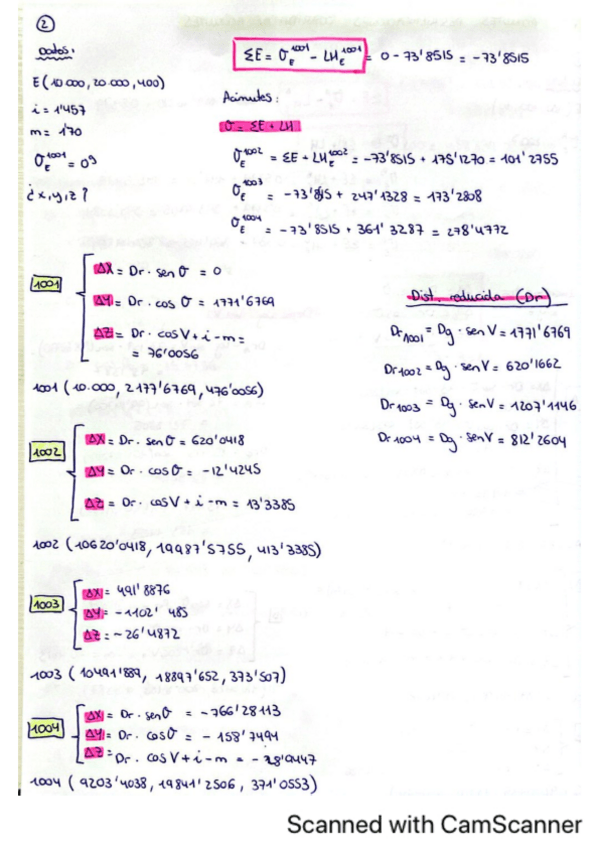 ②
Datos:
E (10.000, 20.000, 400)
i = 1'457
m = 1'70
σ_E^1001 = 0g
¿x,y,z?
ΣE = σ_E^1001 - LH_E^1001 = 0 - 73'8515 = -73'8515
Acimutes:
σ = ΣE + LH
σ_E^1002 = ΣE + LH_E^1002 = -73'8515 + 175'1270 = 101'2755
σ_E^1003 = -73'8515 + 247'1328 = 173'2808
σ_E^1004 = -73'8515 + 361'3287 = 278'4772
1001
ΔX = Dr · sen σ = 0
ΔY = Dr · cos σ = 1771'6769
ΔZ = Dr · cos V + i - m =
= 76'0056
1001 (10.000, 2177'6769, 476'0056)
Dist reducida (Dr)
Dr1001 = Dg · sen V = 1771'6769
Dr1002 = Dg · sen V = 620'1662
Dr1003 = Dg · sen V = 1207'1146
Dr1004 = Dg · sen V = 812'2604
1002
ΔX = Dr · sen σ = 620'0418
ΔY = Dr · cos σ = -12'4245
ΔZ = Dr · cos V + i - m = 13'3385
1002 (10620'0418, 19987'5755, 413'3385)
1003
ΔX = 491'8876
ΔY = -1102'485
ΔZ = -26'4872
1003 (10491'889, 18897'652, 373'507)
1004
ΔX = Dr · sen σ = -766'28113
ΔY = Dr · cos σ = -158'7494
ΔZ = Dr · cos V + i - m =
1004 (9203'4038, 19841'2506, 371'0553)
Scanned with CamScanner